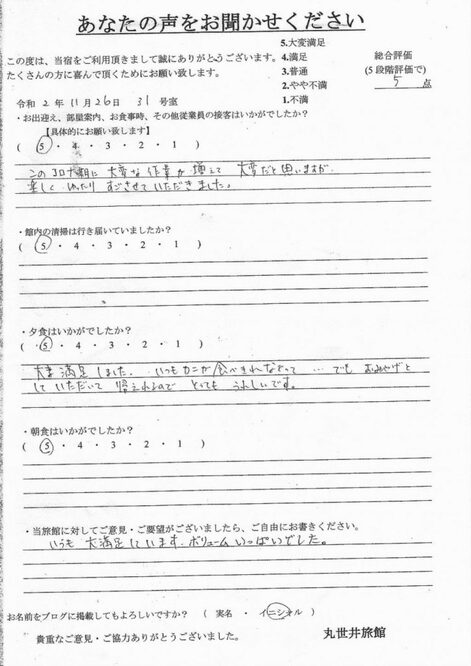 あなたの声をお聞かせください
この度は、当宿をご利用頂きまして誠にありがとうございます。
たくさんの方に喜んで頂くためにお願い致します。
5.大変満足
4.満足
3.普通
2.やや不満
1.不満
総合評価
(5段階評価で)
5 点
令和 2 年 11 月 26 日 31 号室
・お出迎え、部屋案内、お食事時、その他従業員の接客はいかがでしたか？
【具体的にお願い致します】
( 5 ・ 4 ・ 3 ・ 2 ・ 1 )
このコロナ期に 大変な作業が増えて 大変だと思いますが
楽しく ゆったり すごさせていただきました。
・館内の清掃は行き届いていましたか？
( 5 ・ 4 ・ 3 ・ 2 ・ 1 )
・夕食はいかがでしたか？
( 5 ・ 4 ・ 3 ・ 2 ・ 1 )
大変満足しました. いつもカニが食べきれなくって … でも おみやげと
していただいて 帰えれるので とってもうれしいです。
・朝食はいかがでしたか？
( 5 ・ 4 ・ 3 ・ 2 ・ 1 )
・当旅館に対してご意見・ご要望がございましたら、ご自由にお書きください。
いつも 大満足しています. ボリュームいっぱいでした。
お名前をブログに掲載してもよろしいですか？ ( 実名 ・ イニシャル )
貴重なご意見・ご協力ありがとうございました。
丸世井旅館